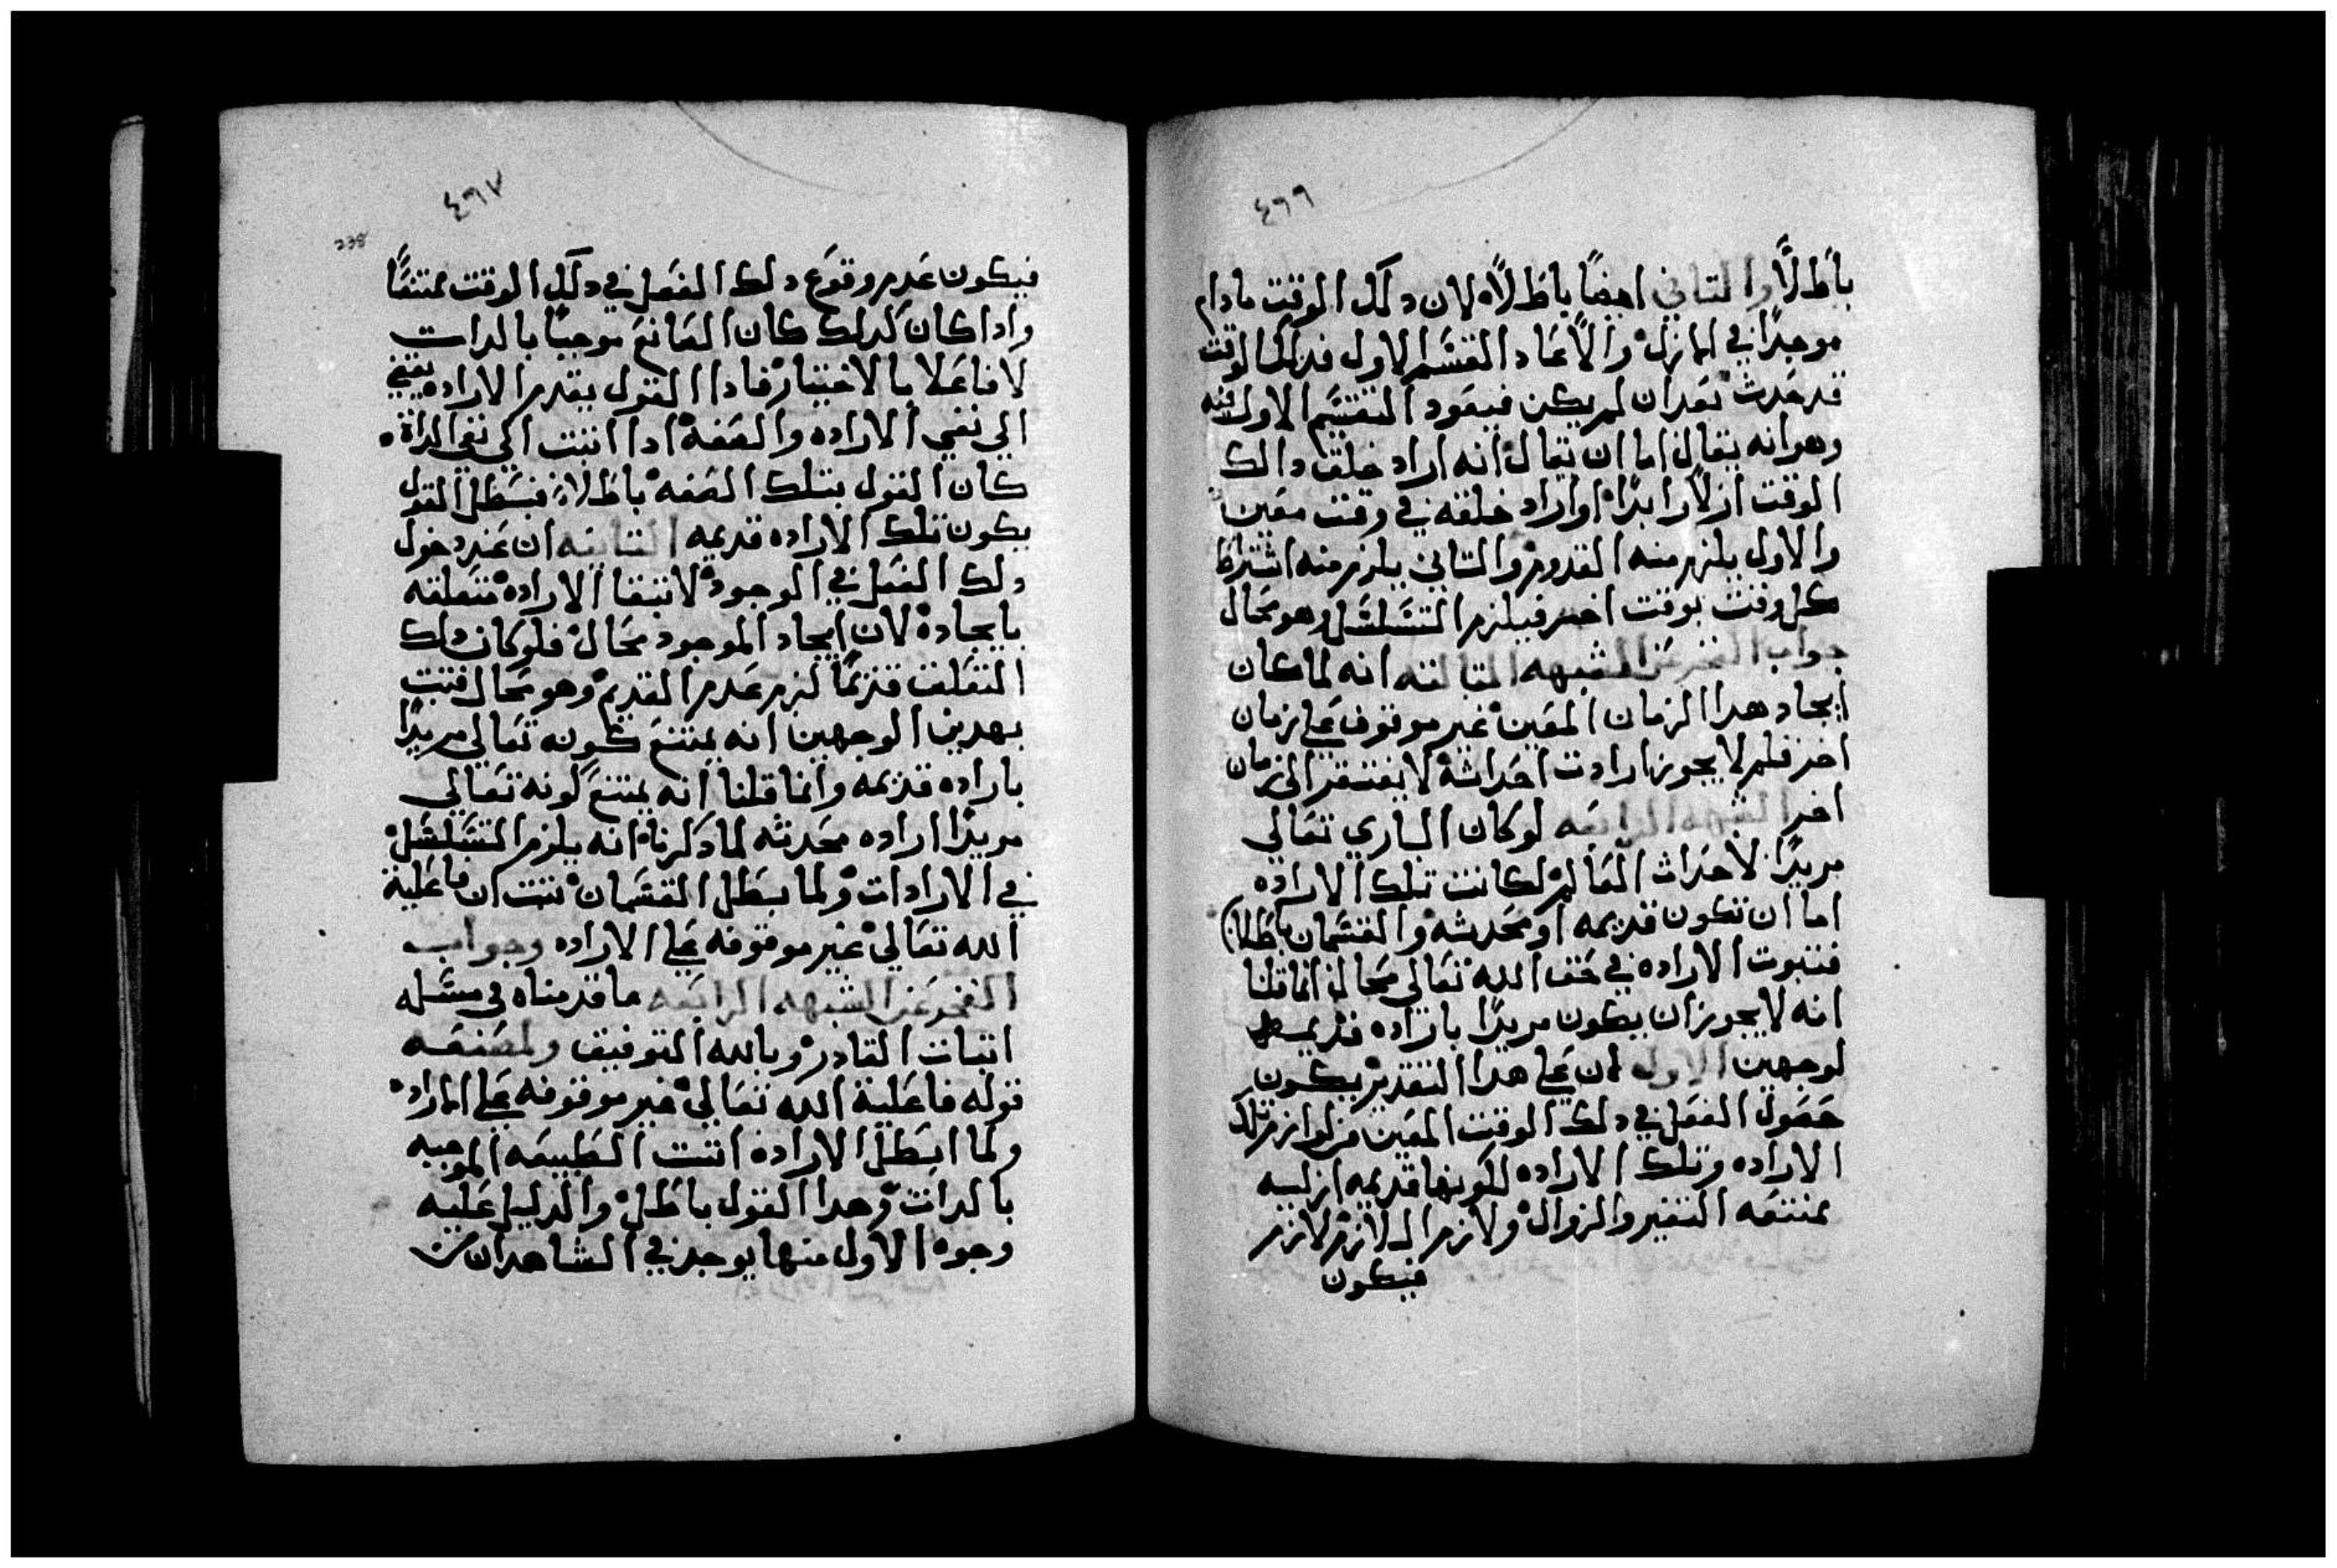 ٤٦٦
باطلًا والتاني ايضًا باطلاً لان دلك الوقت مادام
موجدًا في المازل والا عاد القسم الاول فدالك الوقت
قد حدث بعد ان لم يكن فيعود التقسيم الاول فيه
وهو انه يقال اما ان يقال انه اراد خلق دالك
الوقت ازلاً ابدًا او اراد خلقه في وقت معين
والاول يلزم منه القدوم والتاني يلزم منه اشتراط
كل وقت بوقت اخر فيلزم التسلسل وهو محال
جواب الفخر عن الشبهه التالته انه لما كان
ايجاد هدا الزمان المعين غير موقوف على زمان
اخر فلم لا يجوز ارادت احداثه لا يفتقر الى زمان
اخر الشبهه الرابعه لو كان الباري تعالي
مريدًا لاحداث العالم لكانت تلك الاراده
اما ان تكون قديمه او محدثه والقسمان باطلان
فتبوت الاراده في حق الله تعالي محال انما قلنا
انه لا يجوز ان يكون مريدًا باراده قديمه
لوجهين الاول ان على هدا التقدير يكون
حصول الفعل في دلك الوقت المعين من لوازم تلك
الاراده وتلك الاراده لكونها قديمه ازليه
ممتنعه التغير والزوال ولازم اللازم لازم
فيكون
٤٦٧
238
فيكون عدم وقوع دلك الفعل في دلك الوقت ممتنعًا
وادا كان كدلك كان الصانع موجبًا بالدات
لا فاعلا بالاختيار فادا القول بقدم الاراده يفضي
الي نفي الاراده والصفه ادا اتبت الي نفي الداة
كان القول بتلك الصفه باطلاً فبطل القول
بكون تلك الاراده قديمه التانيه ان عند دخول
دلك الفعل في الوجود لا تبقا الاراده متعلقه
بايجاده لان ايجاد الموجود محال فلو كان دلك
التعلق قديمًا لزم عدم القديم وهو محال فتبت
بهدين الوجهين انه يمتنع كونه تعالي مريدًا
باراده قديمه وانما قلنا انه يمتنع كونه تعالي
مريدًا اراده محدثه لما دكرناه انه يلزم التسلسل
في الارادات ولما بطل القسمان تبت ان فاعلية
الله تعالي غير موقوفه على الاراده وجواب
الفخر عن الشبهه الرابعه ما قدمناه في مسله
اتبات القادر وبالله التوفيق ولمصنفه
قوله فاعلية الله تعالي غير موقوفه على المراد
ولما ابطل الاراده اتبت الطبيعه الموجبه
بالدات وهدا القول باطل والدليل عليه
وجوه الاول منها يوجد في الشاهد ان من